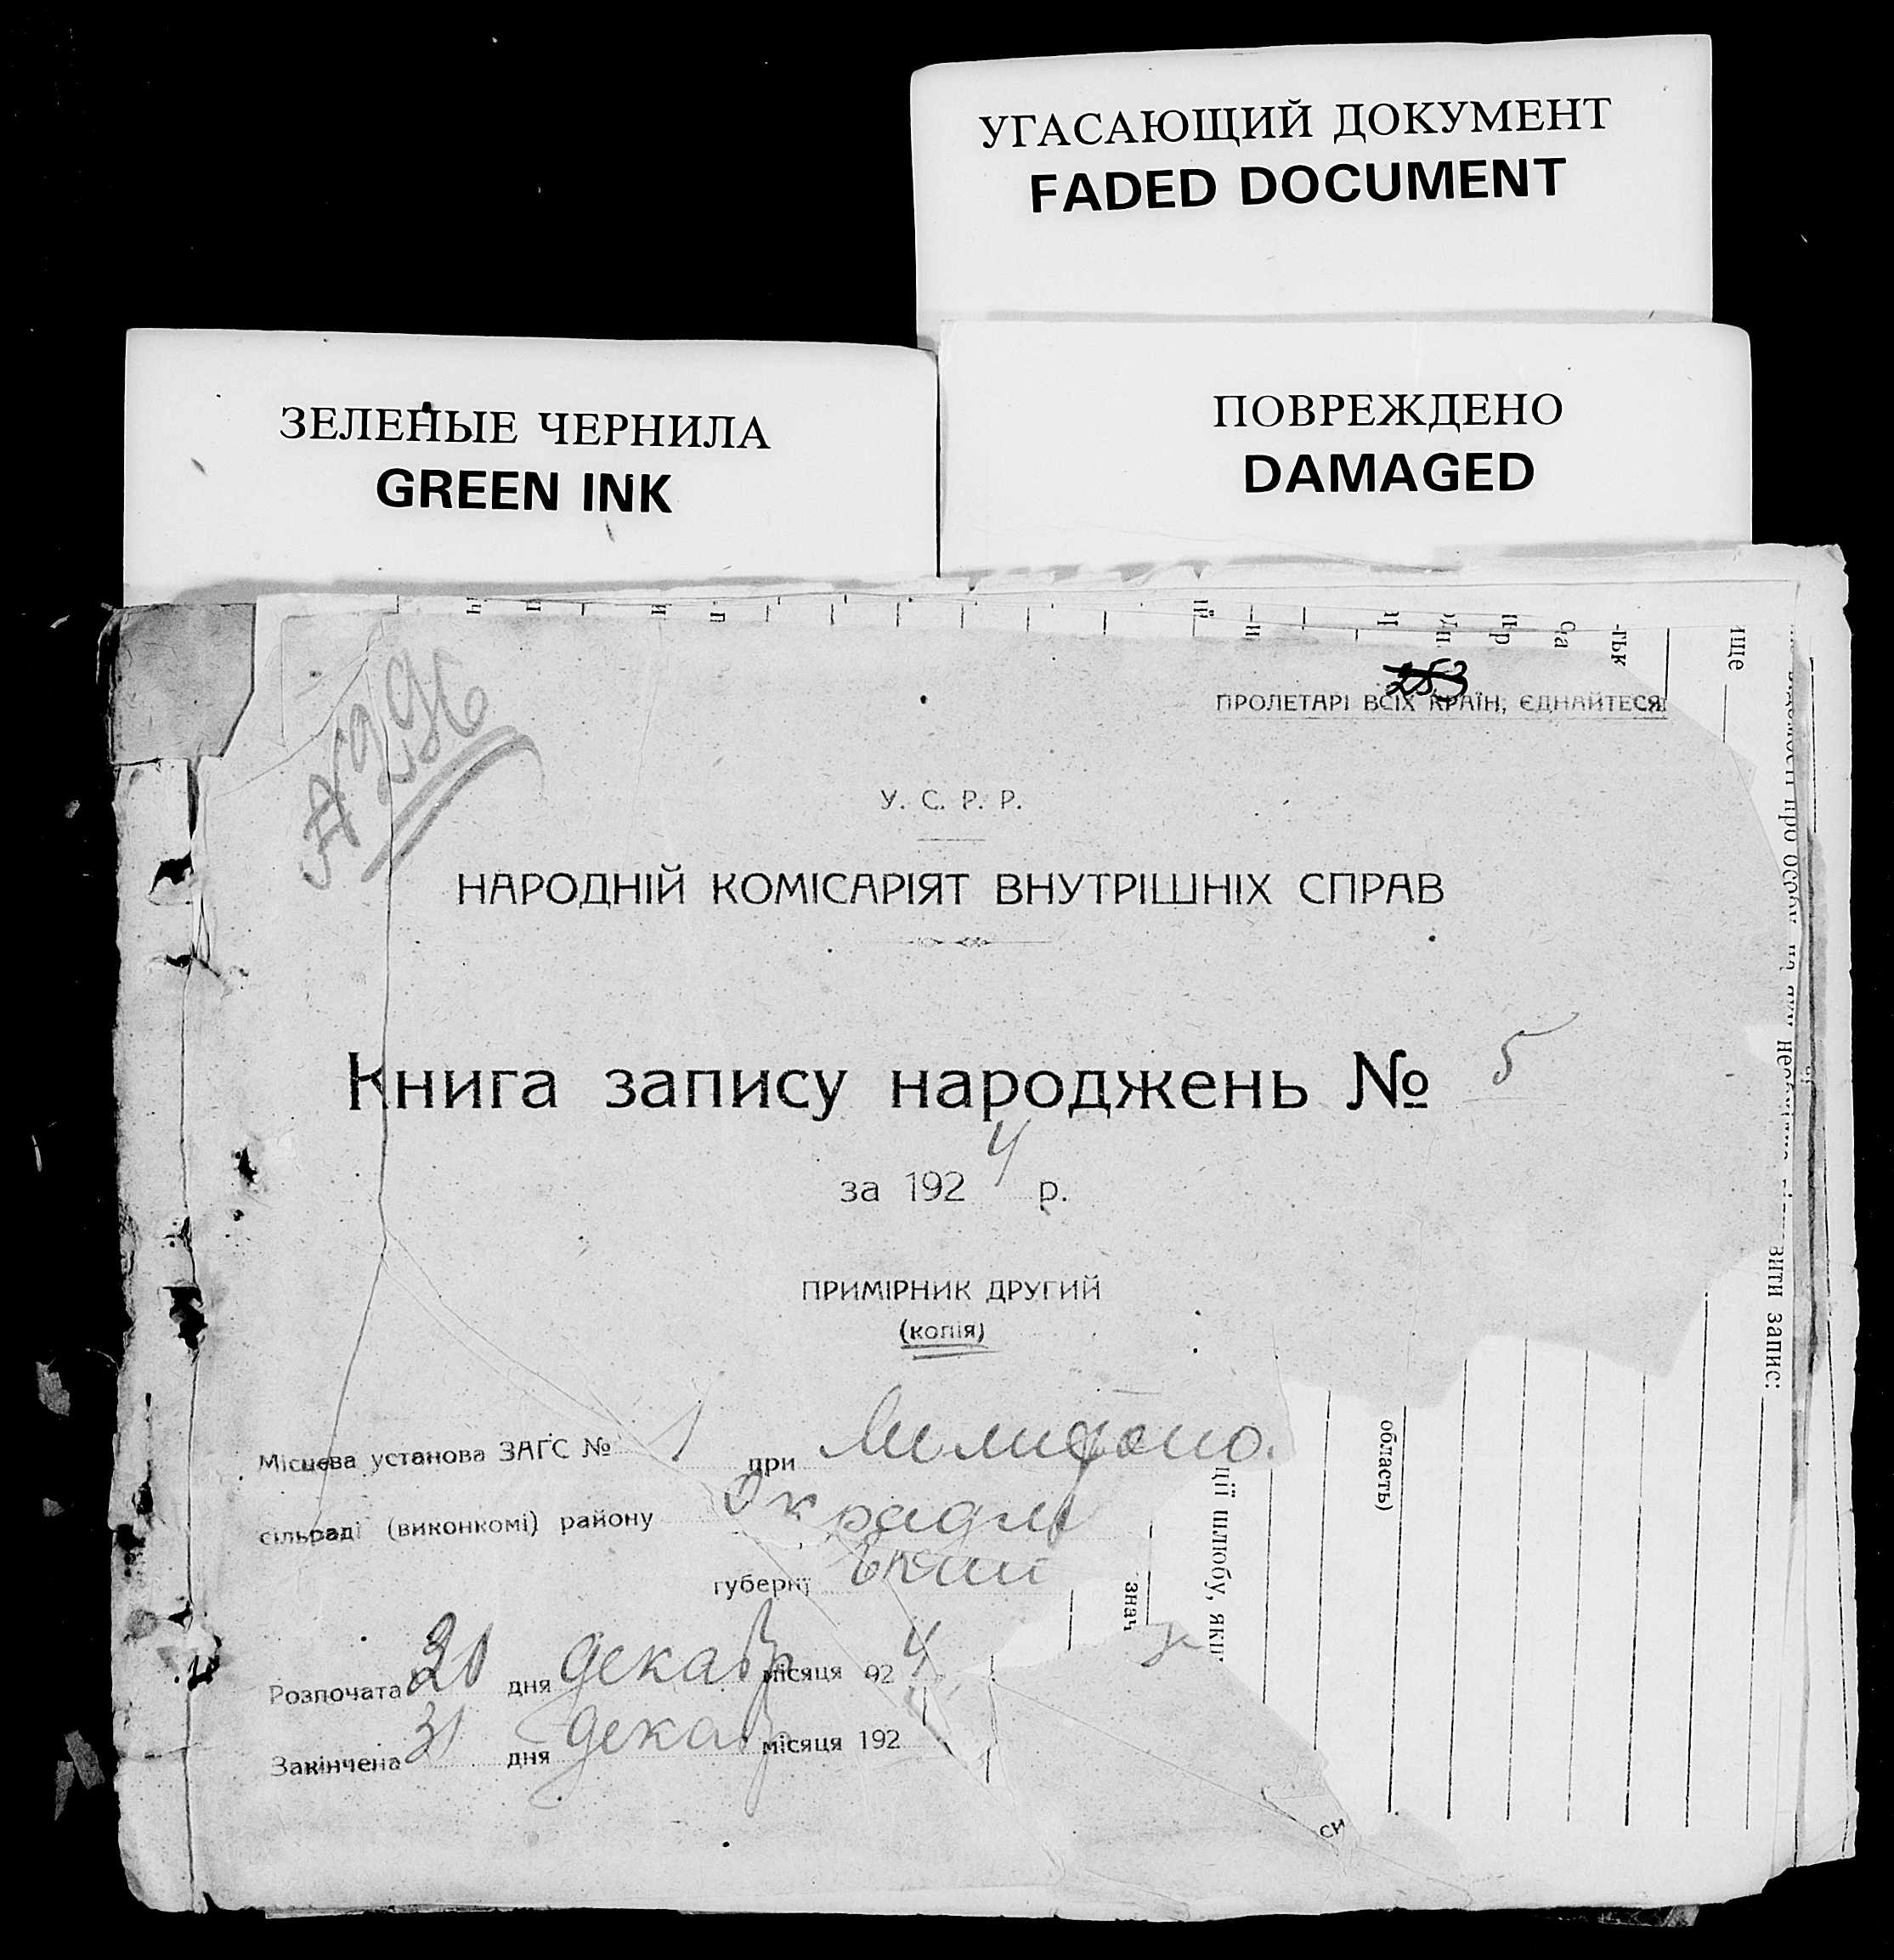 УГАСАЮЩИЙ ДОКУМЕНТ
FADED DOCUMENT
ЗЕЛЕНЫЕ ЧЕРНИЛА
GREEN INK
ПОВРЕЖДЕНО
DAMAGED
253
ПРОЛЕТАРІ ВСІХ КРАЇН, ЄДНАЙТЕСЯ!
У. С. Р. Р.
НАРОДНІЙ КОМІСАРІЯТ ВНУТРІШНІХ СПРАВ
Книга запису народжень № 5
за 1924 р.
ПРИМІРНИК ДРУГИЙ
(копія)
Місцева установа ЗАГС № 1 при
сільраді (виконкомі) району
губернії
Розпочата дня декаб місяця 924
Закінчена 31 дня декаб місяця 192
вити запис:
область)
ції шлюбу, яки
знач
си